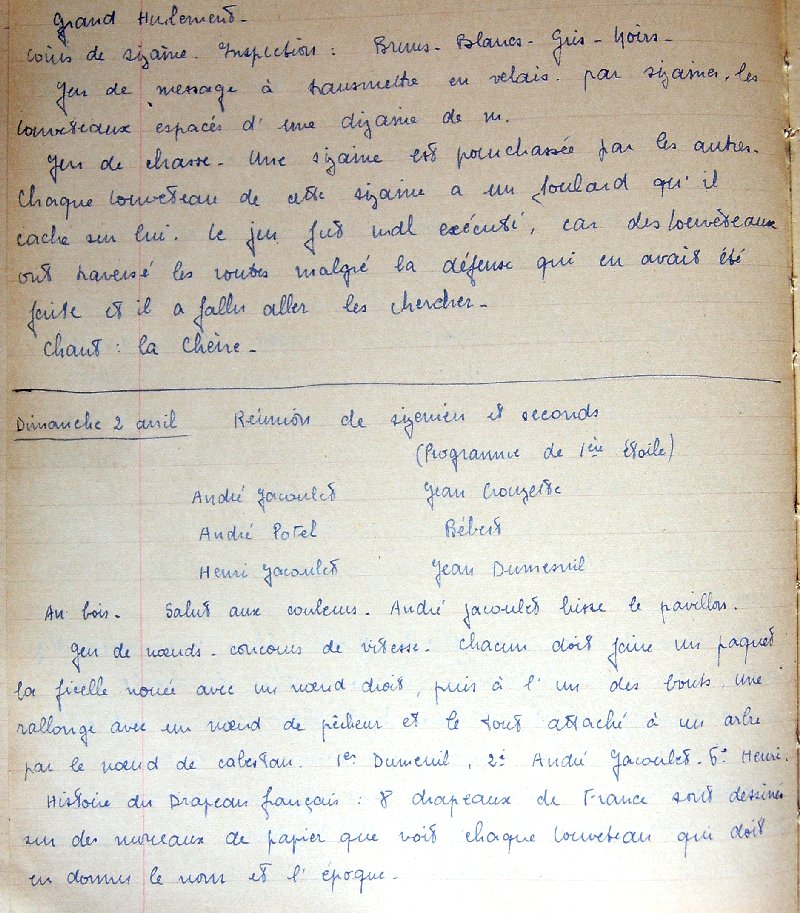 Grand Hurlement.
Cours de sizaine. Inspection : Bruns - Blancs - Gris - Noirs -
Jeu de message à transmettre en relais. par sizaines, les
louveteaux espacés d'une dizaine de m.
Jeu de chasse - Une sizaine est pourchassée par les autres.
Chaque louveteau de cette sizaine a un foulard qu'il
cache sur lui. Le jeu fut mal exécuté, car des louveteaux
ont traversé les routes malgré la défense qui en avait été
faite et il a fallu aller les chercher -
Chant : la Chèvre -
Dimanche 2 avril Réunion de sizeniers et seconds
(Programme de 1ère étoile)
André Jacoulet Jean Crouzette
André Potel Bébert
Henri Jacoulet Jean Dumesnil
Au bois. Salut aux couleurs. André Jacoulet hisse le pavillon.
Jeu de nœuds - concours de vitesse. Chacun doit faire un paquet
la ficelle nouée avec un nœud droit, puis à l'un des bouts, une
rallonge avec un nœud de pêcheur et le tout attaché à un arbre
par le nœud de cabestan. 1er Dumenil, 2e André Jacoulet. Henri.
Histoire du Drapeau français : 8 drapeaux de France sont dessinés
sur des morceaux de papier que voit chaque louveteau qui doit
en donner le nom et l'époque -